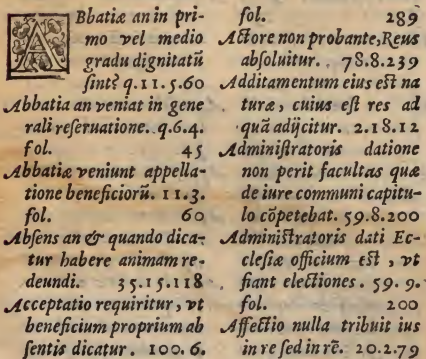 ABbatiæ an in pri-
mo vel medio
gradu dignitatū
sint? q.11.5.60
Abbatia an veniat in gene
rali reseruatione. q.6.4.
fol. 45
Abbatiæ veniunt appella-
tione beneficiorū. 11.3.
fol. 60
Absens an & quando dica-
tur habere animam re-
deundi. 35.15.118
Acceptatio requiritur, vt
beneficium proprium ab
sentis dicatur. 100.6.
fol. 289
Actore non probante, Reus
absoluitur. 78.8.239
Additamentum eius est na
turæ, cuius est res ad
quā adijcitur. 2.18.12
Administratoris datione
non perit facultas quæ
de iure communi capitu-
lo cōpetebat. 59.8.200
Administratoris dati Ec-
clesiæ officium est, vt
fiant electiones. 59.9.
fol. 200
Affectio nulla tribuit ius
in re sed in rē. 20.2.79